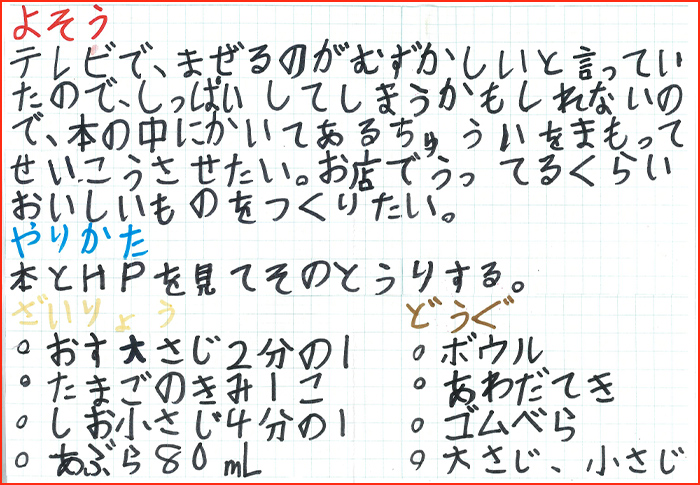 よそう
テレビで、まぜるのがむずかしいと言ってい
たので、しっぱいしてしまうかもしれないの
で、本の中にかいてあるちゅういをまもって
せいこうさせたい。お店でうってるくらい
おいしいものをつくりたい。
やりかた
本とHPを見てそのとうりする。
ざいりょう
○おす大さじ2分の1
○たまごのきみ1こ
○しお小さじ4分の1
○あぶら80mL
どうぐ
○ボウル
○あわだてき
○ゴムべら
○大さじ、小さじ